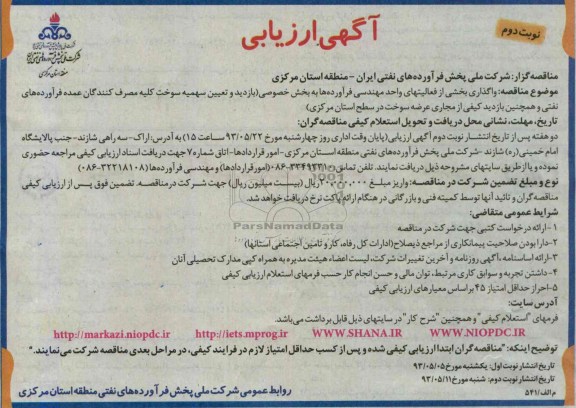 نوبت دوم
آگهی ارزیابی
شرکت ملی پخش فرآورده‌های نفتی ایران
منطقه استان مرکزی
مناقصه‌گزار: شرکت ملی پخش فرآورده‌های نفتی ایران -منطقه استان مرکزی
موضوع مناقصه: واگذاری بخشی از فعالیتهای واحد مهندسی فرآورده‌ها به بخش خصوصی(بازدید و تعیین سهمیه سوخت کلیه مصرف کنندگان عمده فرآورده‌های
نفتی و همچنین بازدید کیفی از مجاری عرضه سوخت در سطح استان مرکزی)
تاریخ، مهلت، نشانی محل دریافت و تحویل استعلام کیفی مناقصه‌گران:
دو هفته پس از تاریخ انتشار نوبت دوم آگهی ارزیابی(پایان وقت اداری روز چهارشنبه مورخ ۹۳/۰۵/۲۲ ساعت ۱۵) به آدرس: اراک-سه راهی شازند-جنب پالایشگاه
امام خمینی(ره) شازند -شرکت ملی پخش فرآورده‌های نفتی منطقه استان مرکزی-امور قراردادها-اتاق شماره۷ جهت دریافت اسناد ارزیابی کیفی مراجعه حضوری
نموده و یا از طریق سایتهای مشروحه ذیل دریافت نمایند. تلفن تماس: (امور قراردادها) و مهندسی فرآورده‌ها(۳۲۲۱۸۱۰۸-۰۸۶)
نوع و مبلغ تضمین شرکت در مناقصه: واریز مبلغ ۲۰،۰۰۰،۰۰۰ ریال (بیست میلیون ریال) جهت شرکت در مناقصه. تضمین فوق پس از ارزیابی کیفی
مناقصه گران و تائید آنها توسط کمیته فنی و بازرگانی در هنگام ارائه پاکت نرخ دریافت خواهد شد.
شرایط عمومی متقاضی:
۱-ارائه درخواست کتبی جهت شرکت در مناقصه
۲-دارا بودن صلاحیت پیمانکاری از مراجع ذیصلاح(ادارات کل رفاه، کار و تامین اجتماعی استانها)
۳-ارائه اساسنامه ،آگهی روزنامه و آخرین تغییرات شرکت، لیست اعضاء هیئت مدیره به همراه کپی مدارک تحصیلی آنان
۴-داشتن تجربه و سوابق کاری مرتبط، توان مالی و حسن انجام کار حسب فرمهای استعلام ارزیابی کیفی
۵-احراز حداقل امتیاز ۴۵ براساس معیارهای ارزیابی کیفی
آدرس سایت:
فرمهای "استعلام کیفی" و همچنین "شرح کار" در سایتهای ذیل قابل برداشت می‌باشد.
http://markazi.niopdc.ir http://iets.mprog.ir WWW.SHANA.IR WWW.NIOPDC.IR
توضیح اینکه: "مناقصه گران ابتدا ارزیابی کیفی شده و پس از کسب حداقل امتیاز لازم در فرایند کیفی، در مراحل بعدی مناقصه شرکت می‌نمایند."
تاریخ انتشار نوبت اول: یکشنبه مورخ ۹۳/۰۵/۰۵
تاریخ انتشار نوبت دوم: شنبه مورخ ۹۳/۰۵/۱۱
م الف/۵۴۱
روابط عمومی شرکت ملی پخش فرآورده‌های نفتی منطقه استان مرکزی
ParsNamadData